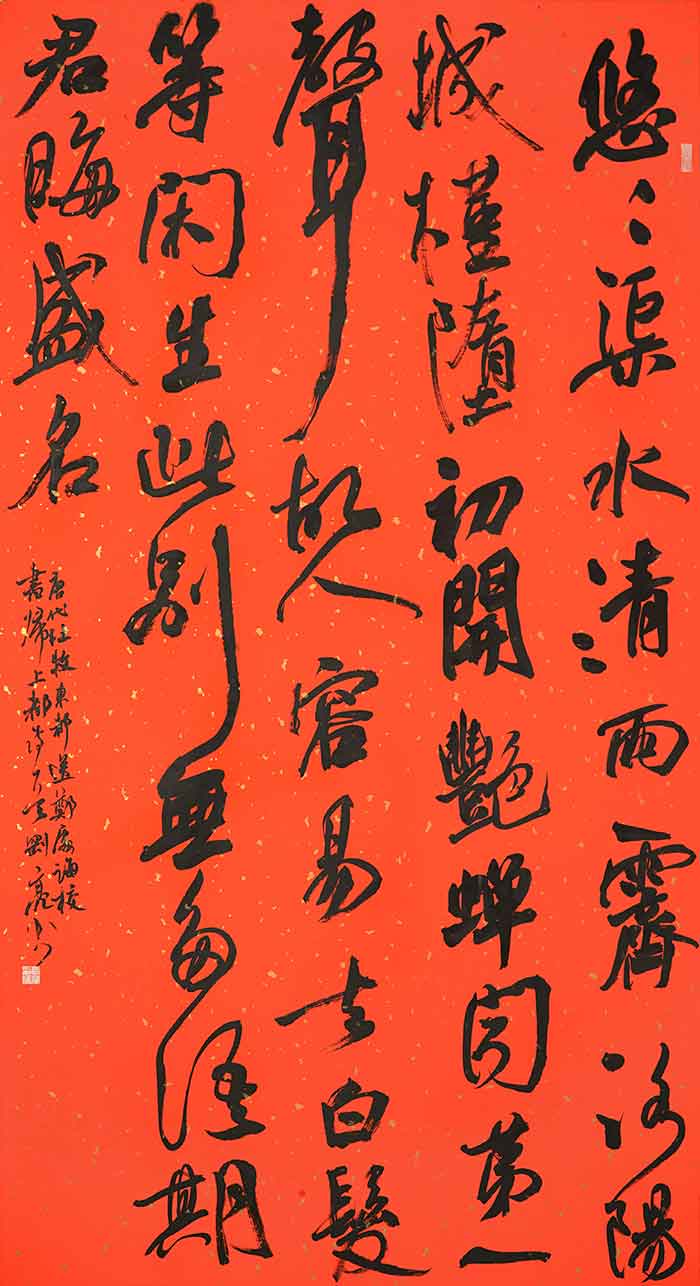 悠〻渠水清雨霽洛陽
城槿墮初開艷蟬聞第一
聲故人容易去白髮
等閑生此別無多語期
君晦盛名
唐代杜牧東都送鄭處誨校
書歸上都詩劉亮